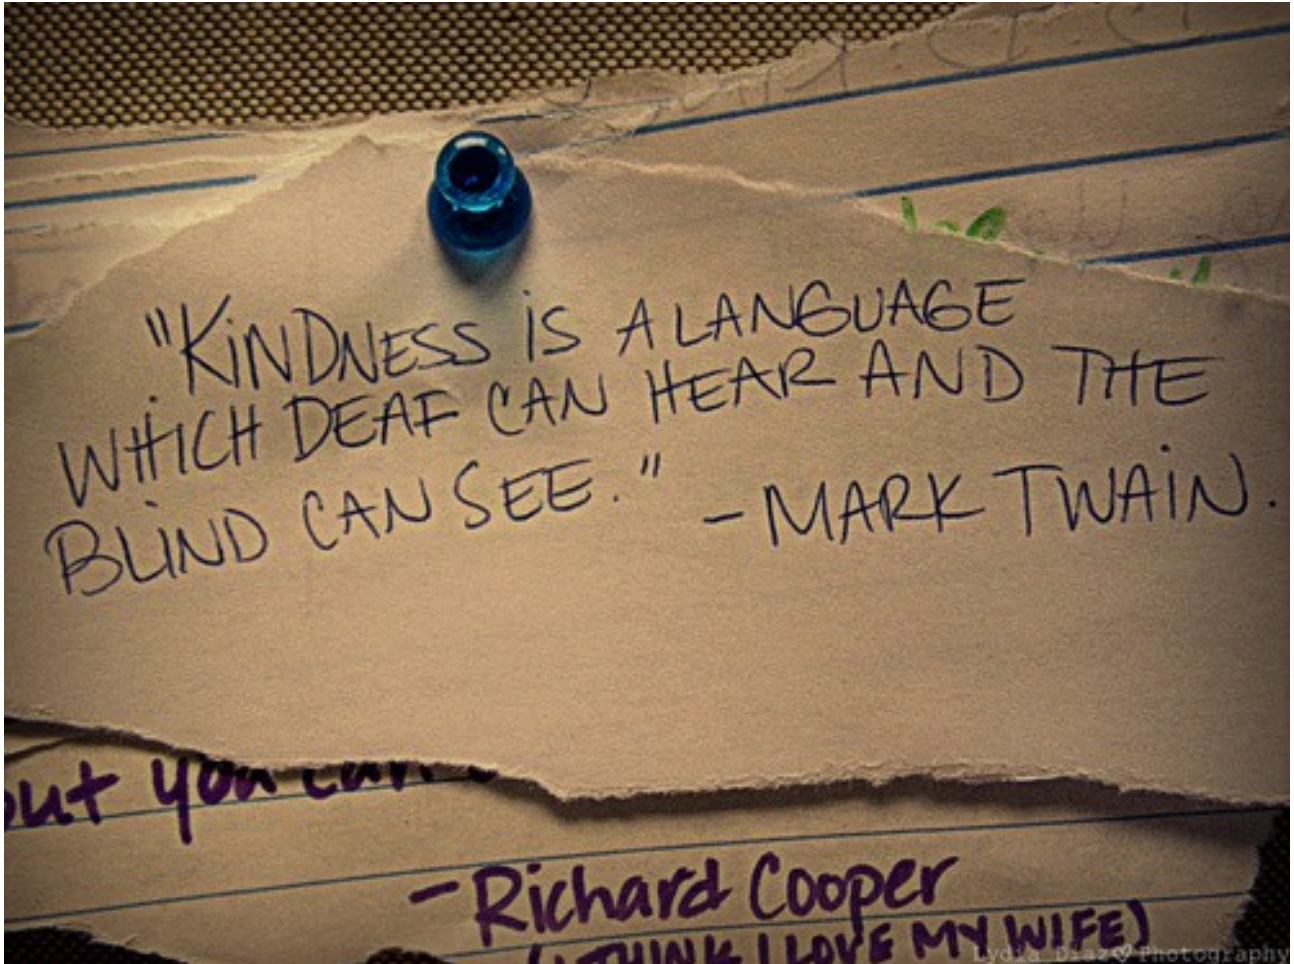 "KiNDNESS iS A LANGUAGE
WHiCH DEAF CAN HEAR AND THE
BLiND CAN SEE." -MARK TWAiN.
but you can't
-Richard Cooper
(I THINK I LOVE MY WIFE)
Lydia Diaz Photography